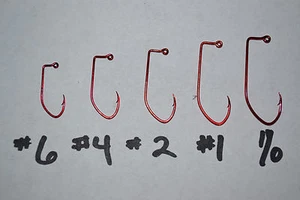 #6 #4 #2 #1 1/0